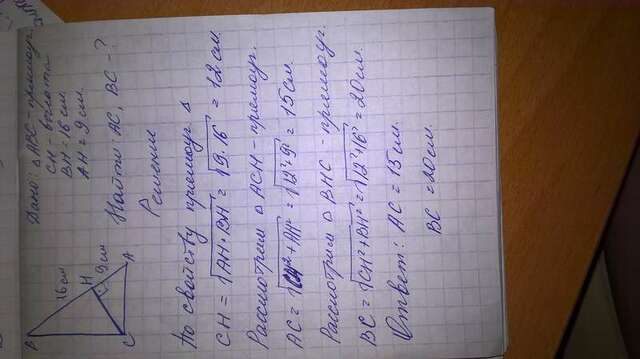 B
16 см
H
9 см
C
A
Дано: △ABC - прямоуг.
CH - высота
BH = 16 см.
AH = 9 см.
Найти: AC, BC - ?
Решение
По свойству прямоуг. △
CH = √AH·BH = √9·16 = 12 см.
Рассмотрим △ ACH - прямоуг.
AC = √CH²+AH² = √12²+9² = 15 см.
Рассмотрим △ BHC - прямоуг.
BC = √CH²+BH² = √12²+16² = 20 см.
Ответ: AC = 15 см.
BC = 20 см.